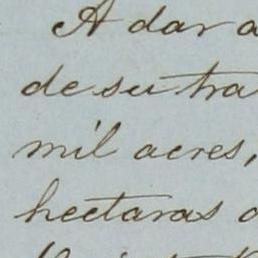 A dar a
de su tra
mil acres,
hectaras